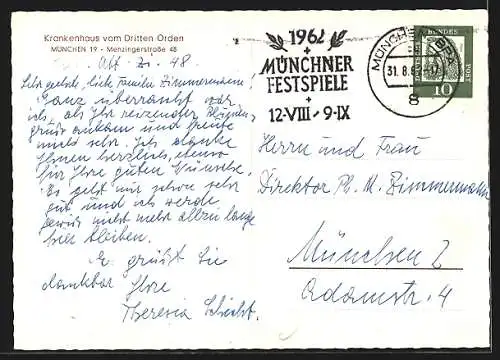 Krankenhaus vom Dritten Orden
MÜNCHEN 19 - Menzingerstraße 48
Abt. Zi. 48.
Sehr geehrte, liebe Familie Zimmermann!
Ganz überrascht war
ich, als Ihr reizender
gruß ankam und freute
mich sehr. Ich danke
Ihnen herzlich, ebenso
für Ihre guten Wünsche.
Es geht mir schon sehr
gut und ich werde
gewiß nicht mehr allzu lange
hier bleiben.
Es grüßt Sie
dankbar Ihre
Theresia
1962
MÜNCHNER
FESTSPIELE
12·VIII - 9·IX
MÜNCHEN
31.8.
8
DEUTSCHE BUNDESPOST
10
Herrn und Frau
Direktor Ph. M. Zimmermann
München 2
Adamstr. 4